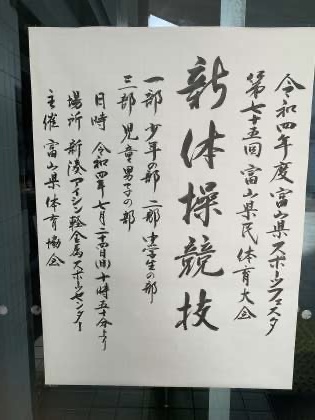 令和四年度富山県スポーツフェスタ
第七十五回富山県民体育大会
新体操競技
一部 少年の部 二部 中学生の部
三部 児童男子の部
日時 令和四年七月二十四日(日)十時五十分より
場所 新湊アイシン軽金属スポーツセンター
主催 富山県体育協会